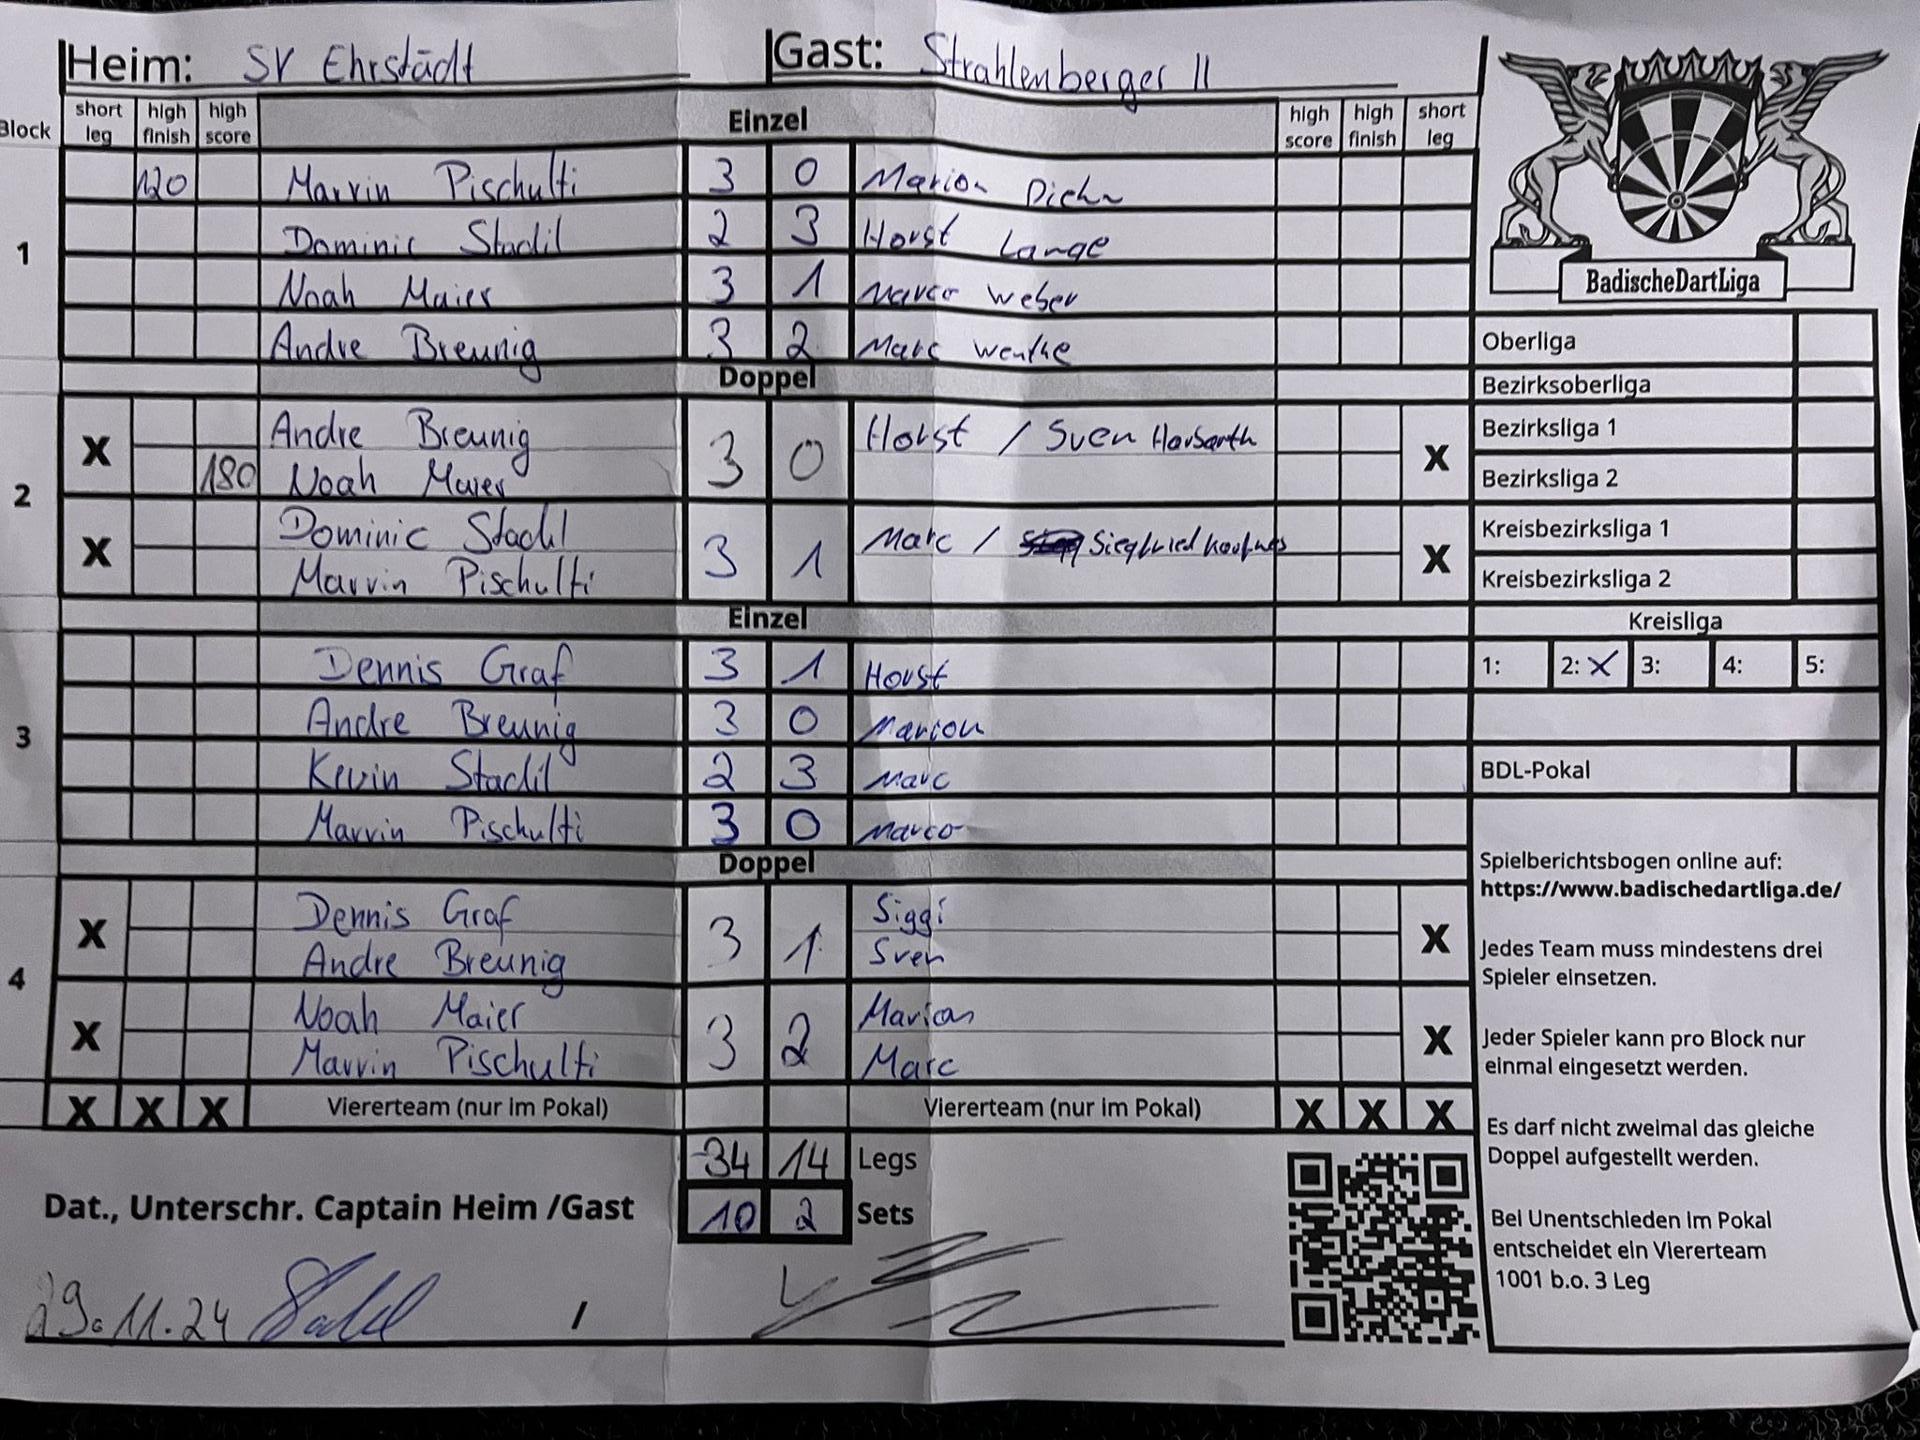 Heim: SV Ehrstädt Gast: Strahlenberger II
Block short leg high finish high score Einzel high score high finish short leg
1
120 Marvin Pischulti 3 0 Marion Diehn
Dominic Stadil 2 3 Horst Lange
Noah Maier 3 1 Marco Weber
Andre Breunig 3 2 Marc Wenthe
Doppel
2
X Andre Breunig 3 0 Horst / Sven X
180 Noah Maier
X Dominic Stadil 3 1 Marc / Siegfried X
Marvin Pischulti
Einzel
3
Dennis Graf 3 1 Horst
Andre Breunig 3 0 Marion
Kevin Stadil 2 3 Marc
Marvin Pischulti 3 0 Marco
Doppel
4
X Dennis Graf 3 1 Siggi X
Andre Breunig Sven
X Noah Maier 3 2 Marion X
Marvin Pischulti Marc
X X X Viererteam (nur im Pokal) Viererteam (nur im Pokal) X X X
34 14 Legs
10 2 Sets
Dat., Unterschr. Captain Heim /Gast
29.11.24 /
BadischeDartLiga
Oberliga
Bezirksoberliga
Bezirksliga 1
Bezirksliga 2
Kreisbezirksliga 1
Kreisbezirksliga 2
Kreisliga
1: 2: X 3: 4: 5:
BDL-Pokal
Spielberichtsbogen online auf:
https://www.badischedartliga.de/
Jedes Team muss mindestens drei
Spieler einsetzen.
Jeder Spieler kann pro Block nur
einmal eingesetzt werden.
Es darf nicht zweimal das gleiche
Doppel aufgestellt werden.
Bei Unentschieden im Pokal
entscheidet ein Viererteam
1001 b.o. 3 Leg